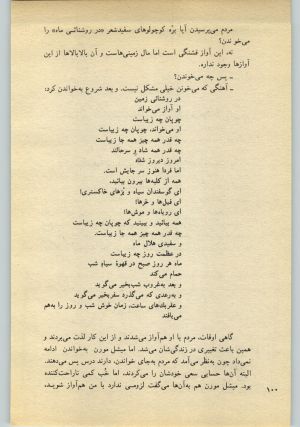 مردم می‌پرسیدن آیا برّه کوچولوهای سفیدشعر «در روشنائی ماه» را
می‌خوندن؟
نه، این آواز قشنگی است اما مال زمینی‌هاست و آن بالابالاها از این
آوازها وجود نداره.
ـ پس چه می‌خوندن؟
ـ آهنگی که می‌خونن خیلی مشکل نیست. و بعد شروع به‌خواندن کرد:
در روشنائی زمین
او آواز می‌خواند
چوپان چه زیباست
او می‌خواند، چوپان چه زیباست
چه قدر همه چیز همه جا زیباست
چه قدر همه شاد و سرحالند
امروز دیروز شده
اما فردا هنوز سر جایش است.
همه از کلبه‌ها بیرون بیائید،
ای گوسفندان سیاه و بُزهای خاکستری!
ای فیل‌ها و خرها!
ای روباه‌ها و موش‌ها!
همه بیائید و ببینید که چوپان چه زیباست
چه قدر همه چیز همه جا زیباست.
و سفیدی هلال ماه
در عظمت روز چه زیباست
ماه هر روز صبح در قهوهٔ سیاهِ شب
حمام می‌کند
و بعد به‌غروب شب‌بخیر می‌گوید
و به‌رعدی که می‌گذره سفربخیر می‌گوید
و با عقربک‌های ساعت، زمان خوش شب و روز را به‌هم
می‌بافند
گاهی اوقات، مردم با او هم‌آواز می‌شدند و از این کار لذت می‌بردند و
همین باعث تغییری در زندگی‌شان می‌شد. اما میشل مورن به‌خواندن ادامه
نمی‌داد چون به‌نظر می‌آمد که مردم به‌جای خواندن، دارند درس پس می‌دهند.
البته آن‌ها حسابی سعی خودشان را می‌کردند، اما خُب کمی ناراحت‌کننده
بود. میشل مورن هم به‌آن‌ها می‌گفت لزومی ندارد با من هم‌آواز شوید،
۱۰۰